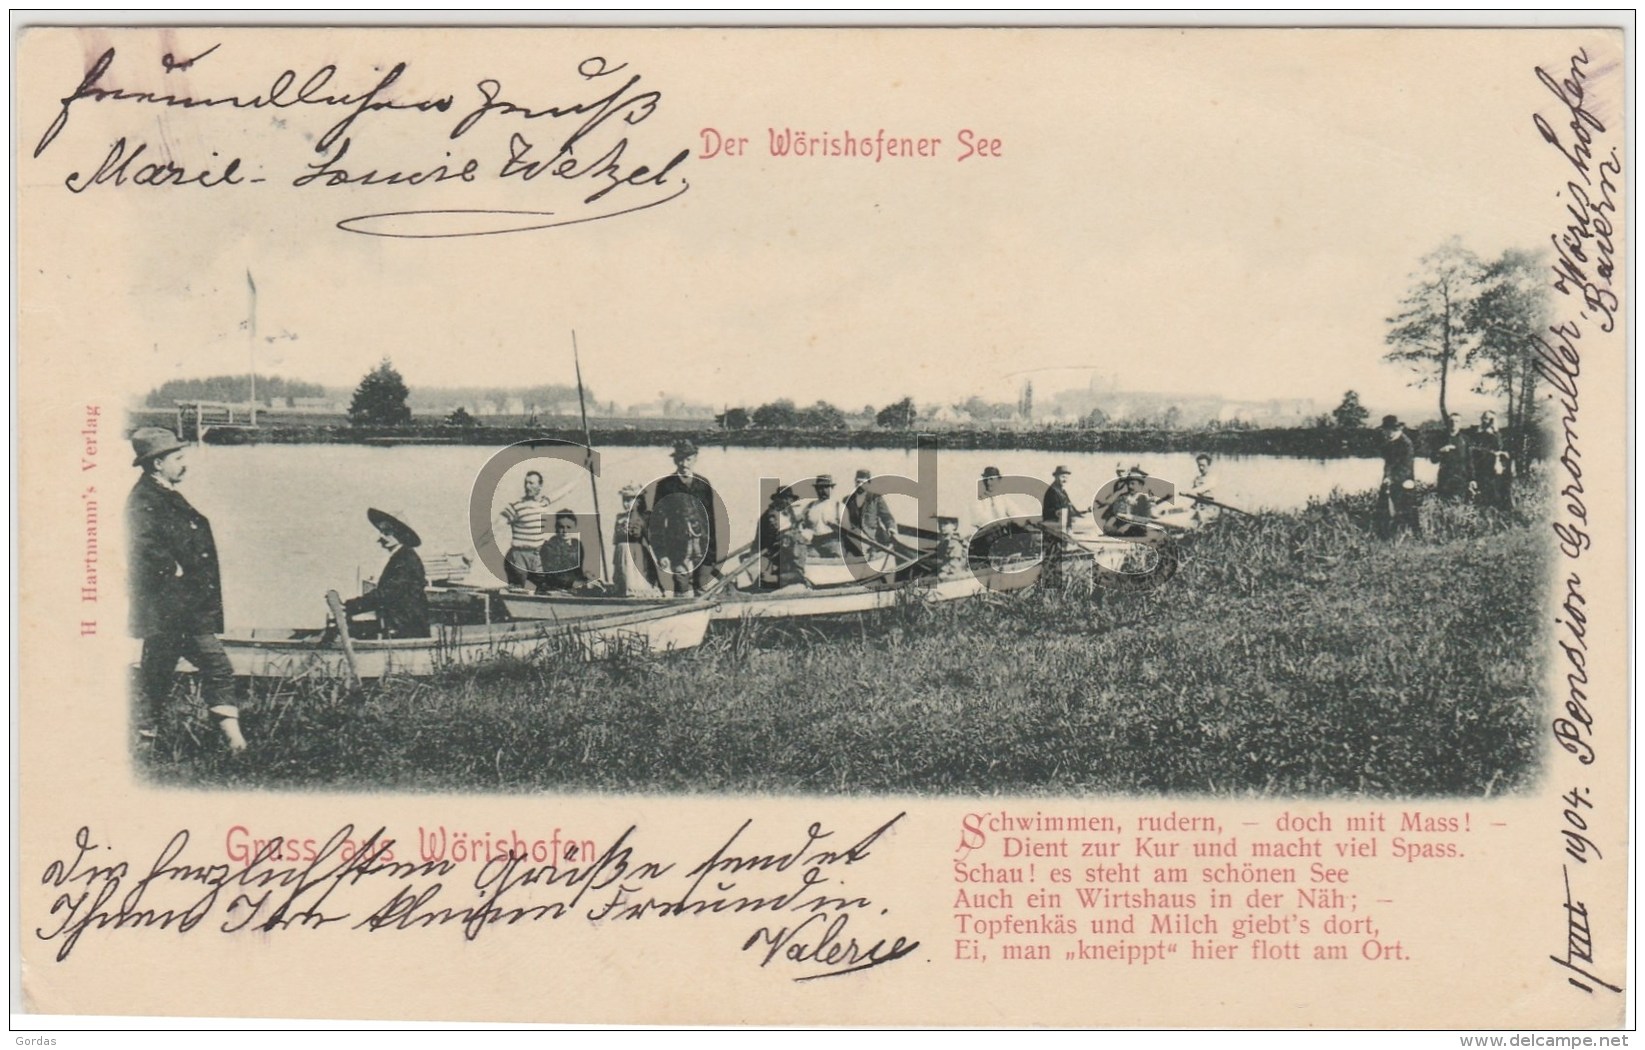 freundlichen Gruß
Marie-Louise Wetzel.
Der Wörishofener See
H Hartmann's Verlag
Gordas
Gruss aus Wörishofen
Die herzlichsten Grüße sendet
Ihnen Ihre kleine Freundin.
Valerie.
Schwimmen, rudern, — doch mit Mass! —
Dient zur Kur und macht viel Spass.
Schau! es steht am schönen See
Auch ein Wirtshaus in der Näh; —
Topfenkäs und Milch giebt's dort,
Ei, man „kneippt“ hier flott am Ort.
1/VIII 1904. Pension Geromiller, Wörishofen
Baiern.
Gordas
delcampe.net